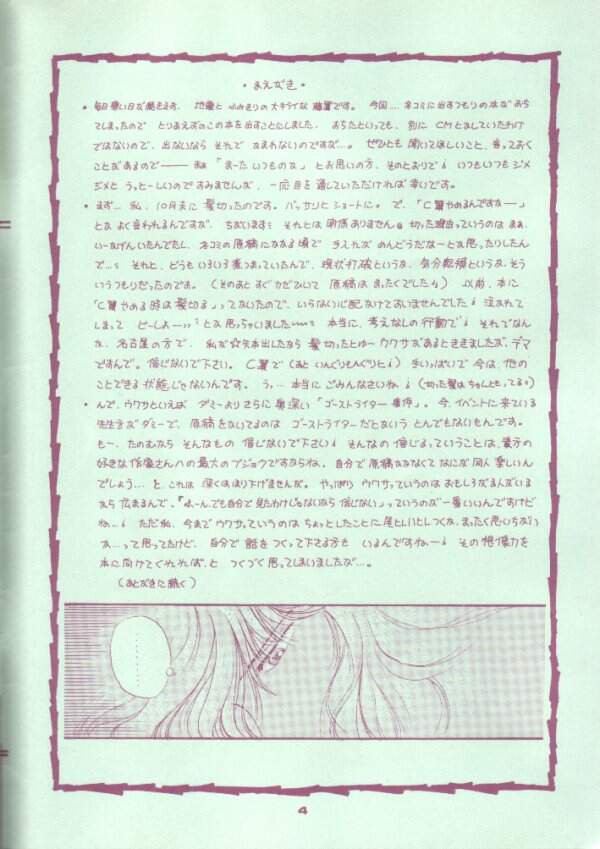 ・まえがき・
・毎日寒い日が続きます、地震と
てしまったので とりあえずのこの本を出すことにしました。おちたといっても、別に CMとかしていたわけ
ではないので、出ないなら それで かまれないのですが…。ぜひとも 聞いてほしいこと、言っておく
ことがあるので――― ああ「まーた いつものか」とお思いの方、そのとおりで いつもいつも ジメ
ジメと うっとーしいのですみませんが、一応目を通していただければ幸いです。
・まず… 私、10月末に 髪切ったのです。バッサリと ショートに。で、「C翼やめるんですかー」
とか よく言われるんですが、ちがいます それとは 関係ありません。切った理由っていうのは まぁ、
いーかげんいたんでたし、ネコミの原稿にかかる頃で 手入れが めんどうだな〜とか思ったりしたん
で… それと、どうもいろいろ煮つまっていたんで、現状打破というか、気分転換というか、そう
いうつもりだったのです。(そのあと すぐ カゼひいて 原稿は まったくでした) 以前、本に
「C翼やめる時は髪切る」ってかいたので、いらない心配かけて おいませんでした 泣かれて
しまって どーしよーッ とか思っちゃいました 本当に、考えなしの行動で それでなんか、
名古屋の方で、私が☆矢本出したなら 髪切ったとゆー ウワサがあるとききましたが、デマ
ですんで。信じないで下さい。C翼で 手いっぱいで 今は、他の
ことできる状態じゃないんです。うっ… 本当に ごみんなさいね (切った髪はちゃんと もってる)
・んで、ウワサといえば ダミーより さらに 奥深い「ゴーストライター事件」。今、イベントに来ている
先生方が ダミーで、原稿をかいてるのは ゴーストライターだとかいう とんでもないもんです。
も〜、たのむから そんなもの 信じないで下さい そんなの 信じるっていうことは、貴方の
好きな作家さんへの最大のブジョクですからね。自分で原稿かかなくて なにが 同人 楽しいん
でしょう… と、これは 深くはほり下げませんが。やっぱり ウワサっていうのは おもしろがる人がいる
から 広まるんで、『ふーん、でも自分で見たわけじゃないなら 信じない』っていうのが一番いいんですけど
ね… ただ私、今まで ウワサっていうのは ちょっとしたことに 尾ヒレハヒレつくか、まったく思いちがい
か…って思ってたけど、自分で 話をつくって下さる方も いるんですねー その想像力を
本に向けてくれれば、と つくづく思ってしまいましたが…。
(あとがきに続く)
4